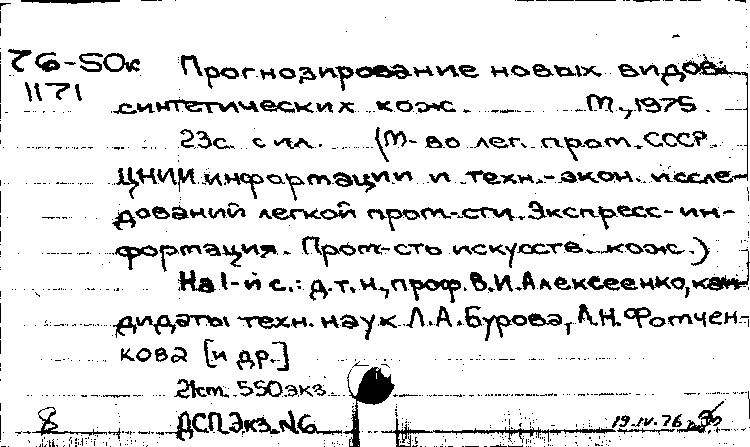 76-50к Прогнозирование новых видов
1171
синтетических кож. М., 1975.
23с. с ил. (М-во лег. пром. СССР.
ЦНИИ информации и техн.-экон. иссле-
дований легкой пром-сти. Экспресс-ин-
формация. Пром-сть искусств. кож.)
На 1-й с.: д.т.н., проф. В.И. Алексеенко, кан-
дидаты техн. наук Л.А. Бурова, Л.Н. Фомчен-
кова [и др.]
21см. 550 экз.
8 ДСП. Экз. №6 19.IV.76